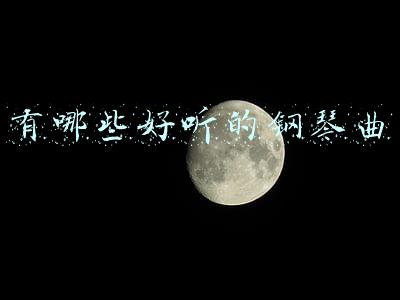 有哪些好听的钢琴曲